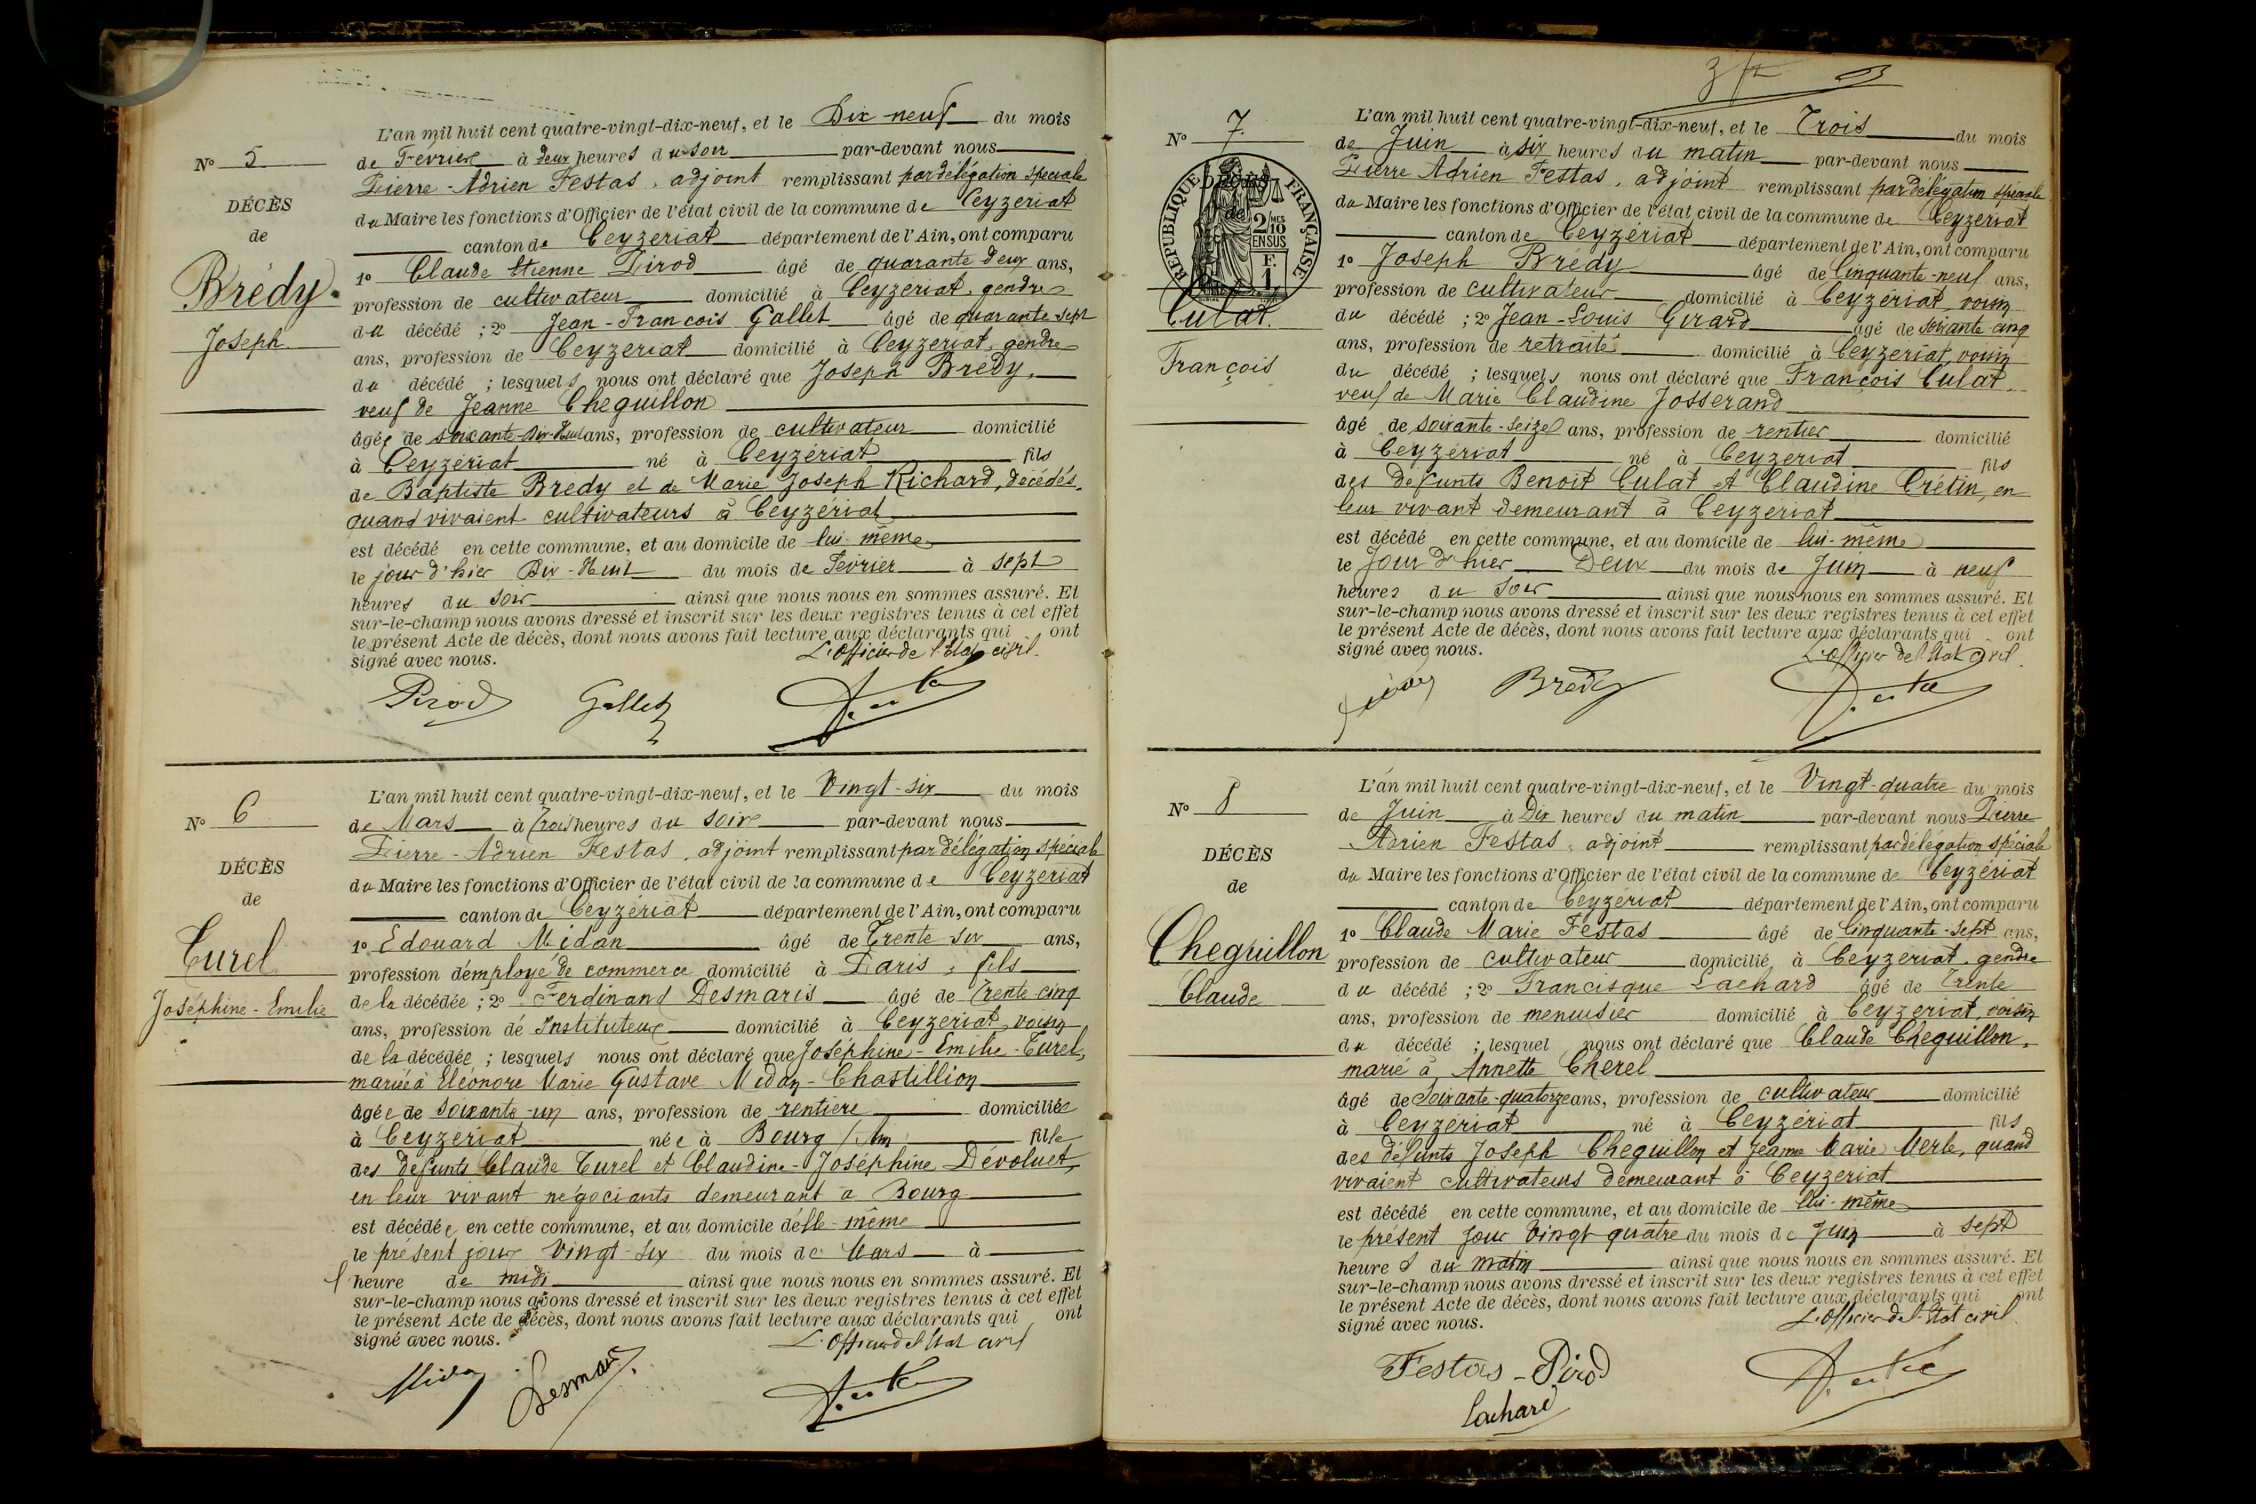 L'an mil huit cent quatre-vingt-dix-neuf, et le Dix-neuf du mois
N° 5
de Février à deux heures du soir par-devant nous
Pierre-Adrien Festas, adjoint remplissant par délégation spéciale
DÉCÈS
du Maire les fonctions d'Officier de l'état civil de la commune de Ceyzériat
de
canton de Ceyzériat département de l'Ain, ont comparu
1° Claude Etienne Pirod âgé de quarante deux ans,
Brédy
profession de cultivateur domicilié à Ceyzériat, gendre
du décédé ; 2° Jean-François Gallet âgé de quarante sept
Joseph
ans, profession de Ceyzériat domicilié à Ceyzériat, gendre
du décédé ; lesquels nous ont déclaré que Joseph Brédy,
veuf de Jeanne Cheguillon
âgé de soixante-dix-huit ans, profession de cultivateur domicilié
à Ceyzériat né à Ceyzériat fils
de Baptiste Brédy et de Marie Joseph Richard, décédés,
quand vivaient cultivateurs à Ceyzériat
est décédé en cette commune, et au domicile de lui-même
le jour d'hier Dix-Huit du mois de Février à sept
heures du soir ainsi que nous nous en sommes assuré. Et
sur-le-champ nous avons dressé et inscrit sur les deux registres tenus à cet effet
le présent Acte de décès, dont nous avons fait lecture aux déclarants qui ont
signé avec nous. L'Officier de l'état civil.
Pirod Gallet
L'an mil huit cent quatre-vingt-dix-neuf, et le Vingt-six du mois
N° 6
de Mars à Trois heures du soir par-devant nous
Pierre-Adrien Festas, adjoint remplissant par délégation spéciale
DÉCÈS
du Maire les fonctions d'Officier de l'état civil de la commune de Ceyzériat
de
canton de Ceyzériat département de l'Ain, ont comparu
1° Edouard Midan âgé de Trente six ans,
Curel
profession d'employé de commerce domicilié à Paris, fils
Joséphine-Emilie
de la décédée ; 2° Ferdinand Desmaris âgé de Trente cinq
ans, profession de Instituteur domicilié à Ceyzériat, voisin
de la décédée ; lesquels nous ont déclaré que Joséphine-Emilie-Curel,
mariée à Eléonore Marie Gustave Midan-Chastillion
âgée de soixante-un ans, profession de rentière domiciliée
à Ceyzériat née à Bourg / Ain fille
des défunts Claude Curel et Claudine-Joséphine Dévoluet,
en leur vivant négociants demeurant à Bourg
est décédée en cette commune, et au domicile d'elle-même
le présent jour Vingt-six du mois de Mars à
heure de midi ainsi que nous nous en sommes assuré. Et
sur-le-champ nous avons dressé et inscrit sur les deux registres tenus à cet effet
le présent Acte de décès, dont nous avons fait lecture aux déclarants qui ont
signé avec nous. L'Officier de l'Etat civil
Midan Desmaris
L'an mil huit cent quatre-vingt-dix-neuf, et le Trois du mois
N° 7
de Juin à six heures du matin par-devant nous
Pierre Adrien Festas, adjoint remplissant par délégation spéciale
du Maire les fonctions d'Officier de l'état civil de la commune de Ceyzériat
RÉPUBLIQUE FRANÇAISE
2/10 MES
EN SUS
F.
1
canton de Ceyzériat département de l'Ain, ont comparu
1° Joseph Brédy âgé de Cinquante-neuf ans,
profession de cultivateur domicilié à Ceyzériat, voisin
Culat.
du décédé ; 2° Jean-Louis Girard âgé de soixante cinq
ans, profession de retraité domicilié à Ceyzériat, voisin
François
du décédé ; lesquels nous ont déclaré que François Culat,
veuf de Marie Claudine Josserand
âgé de soixante-seize ans, profession de rentier domicilié
à Ceyzériat né à Ceyzériat fils
des défunts Benoit Culat et Claudine Crétin, en
leur vivant demeurant à Ceyzériat
est décédé en cette commune, et au domicile de lui-même
le Jour d'hier Deux du mois de Juin à neuf
heures du soir ainsi que nous nous en sommes assuré. Et
sur-le-champ nous avons dressé et inscrit sur les deux registres tenus à cet effet
le présent Acte de décès, dont nous avons fait lecture aux déclarants qui ont
signé avec nous. L'Officier de l'Etat civil.
Brédy
L'an mil huit cent quatre-vingt-dix-neuf, et le Vingt-quatre du mois
N° 8
de Juin à Dix heures du matin par-devant nous Pierre
Adrien Festas, adjoint remplissant par délégation spéciale
DÉCÈS
du Maire les fonctions d'Officier de l'état civil de la commune de Ceyzériat
de
canton de Ceyzériat département de l'Ain, ont comparu
1° Claude Marie Festas âgé de Cinquante-sept ans,
Cheguillon
profession de cultivateur domicilié à Ceyzériat, gendre
Claude
du décédé ; 2° Francisque Lachard âgé de Trente
ans, profession de menuisier domicilié à Ceyzériat, voisin
du décédé ; lesquel nous ont déclaré que Claude Cheguillon,
marié à Annette Cherel
âgé de Soixante-quatorze ans, profession de cultivateur domicilié
à Ceyzériat né à Ceyzériat fils
des défunts Joseph Cheguillon et Jeanne Marie Merle, quand
vivaient cultivateurs demeurant à Ceyzériat
est décédé en cette commune, et au domicile de lui-même
le présent jour Vingt quatre du mois de Juin à sept
heures du matin ainsi que nous nous en sommes assuré. Et
sur-le-champ nous avons dressé et inscrit sur les deux registres tenus à cet effet
le présent Acte de décès, dont nous avons fait lecture aux déclarants qui ont
signé avec nous. L'Officier de l'Etat civil.
Festas-Pirod
Lachard